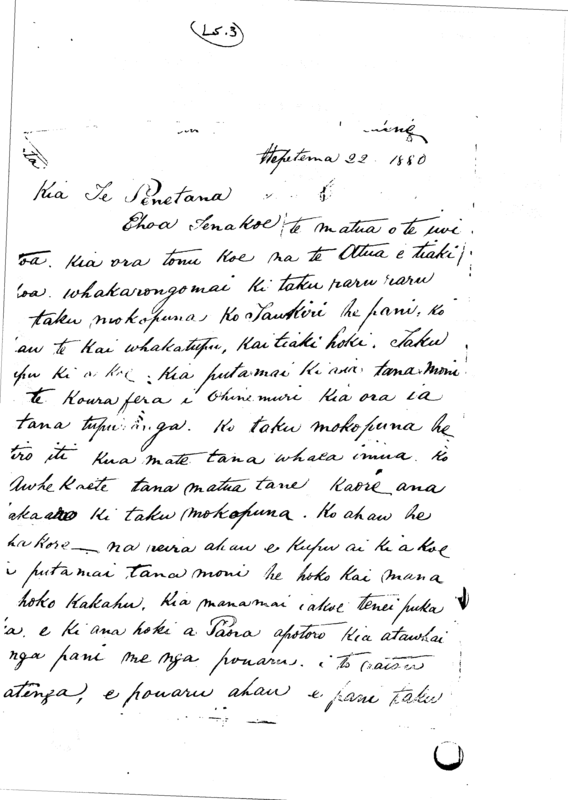 (L5.3)
Hepetema 22 1880
Kia Te Penetana
Ehoa Tenakoe te matua o te iwi
toa. Kia ora tonu Koe na te Atua e tiaki
hoa. whakarongomai Ki taku raru raru
taku mokopuna Ko Taukiri he pani. Ko
au te Kai whakatupu, Kai tiaki hoki. Taku
Ki a Koe : Kia putamai Ki a tana moni
te Koura fera i Ohinemuri Kia ora ia
tana tupu nga. Ko taku mokopuna he
iti Kua mate tana whaea imua. Ko
tana matua tane Kaore ana
Ki taku mokopuna. Ko ahau he
Kore na reira ahau e Kupu ai Ki a koe
putamai tana moni he hoko Kai mana
hoko Kakahu, Kia manamai iakoe tenei puka
e Ki ana hoki a Paora apotoro Kia atawhai
nga pani me nga pouaru. i to
e pouaru ahau e pani taku